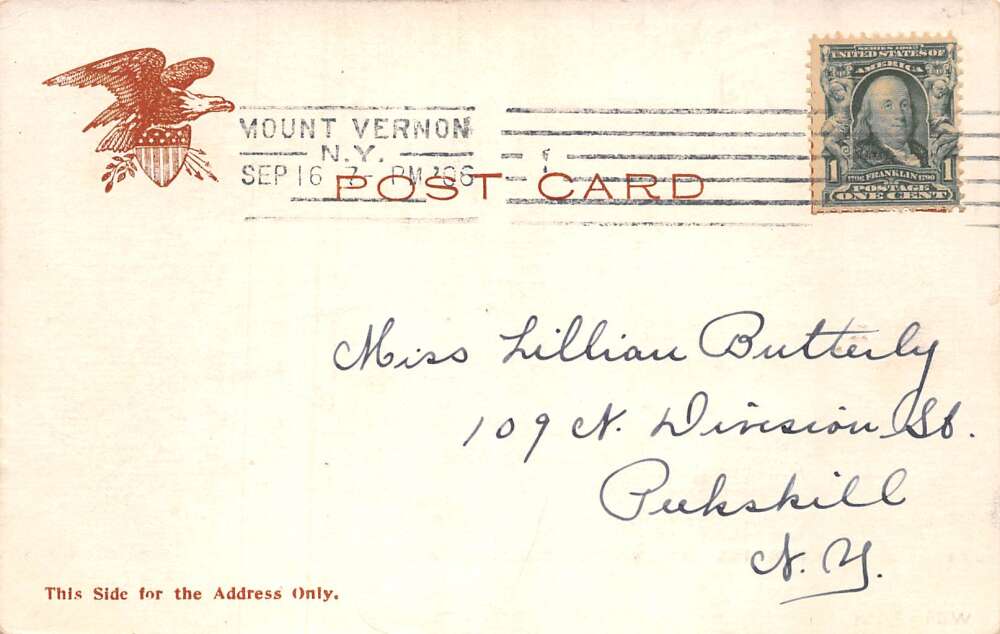 SERIES 1902
UNITED STATES OF
AMERICA
1 1706 FRANKLIN 1790 1
POSTAGE
ONE CENT
MOUNT VERNON
N.Y.
SEP 16 7- PM '06
POST CARD
Miss Lillian Butterly
109 N. Division St.
Peekskill
N. Y.
This Side for the Address Only.